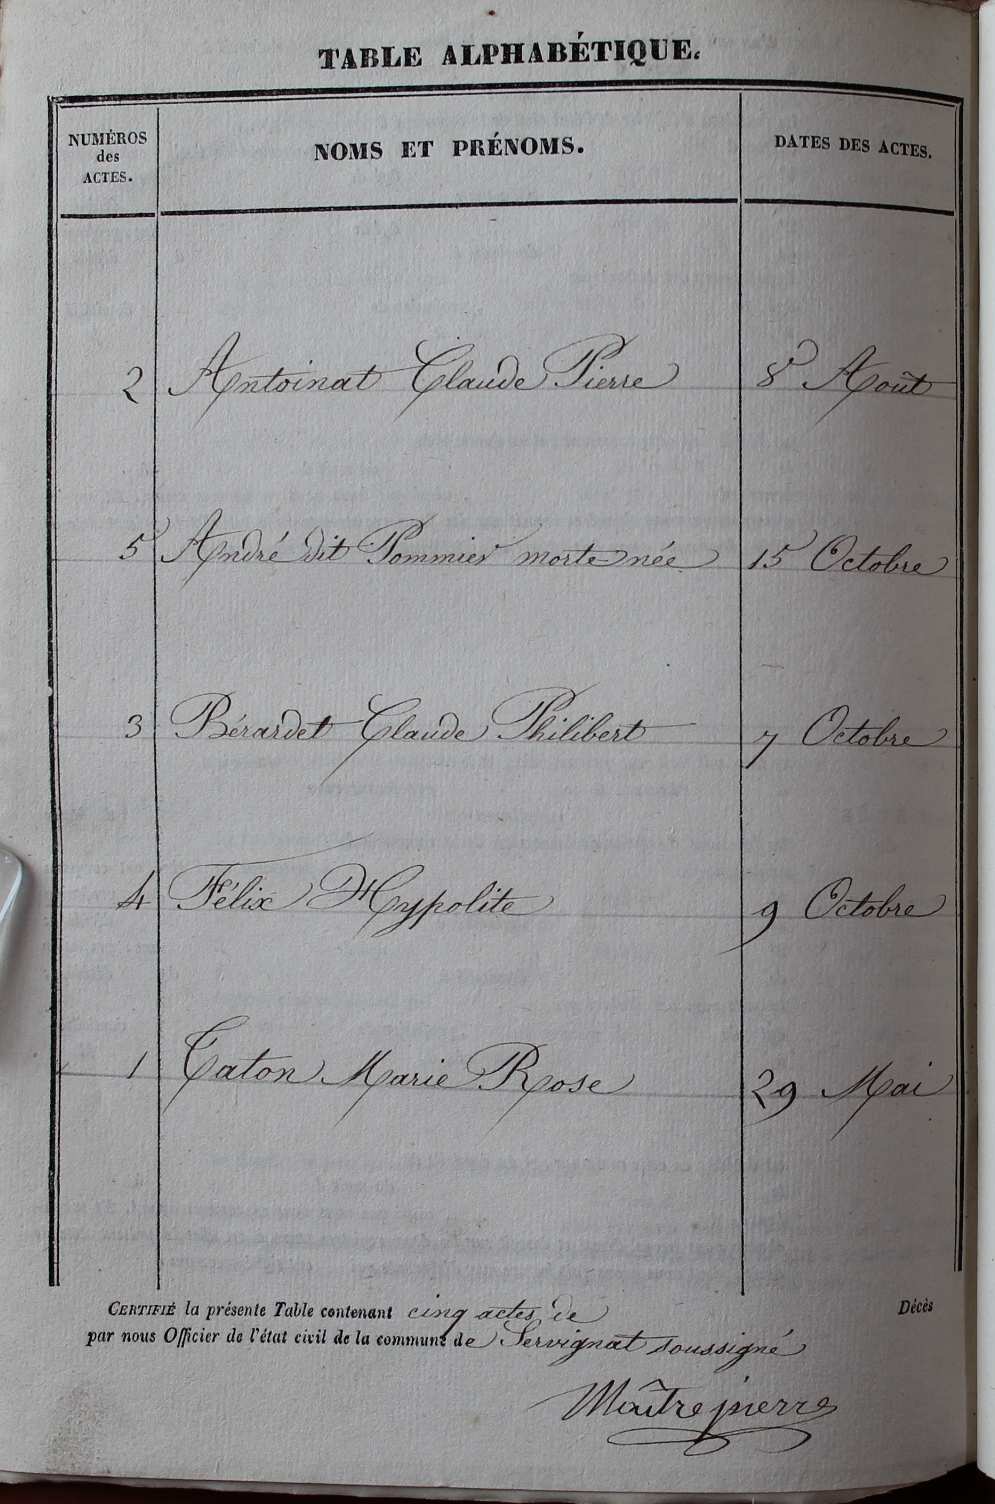 TABLE ALPHABÉTIQUE.
NUMÉROS
des
ACTES.
NOMS ET PRÉNOMS.
DATES DES ACTES.
2 Antoinat Claude Pierre 8 Août
5 André dit Pommier morte née 15 Octobre
3 Bérardet Claude Philibert 7 Octobre
4 Félix Hypolite 9 Octobre
1 Caton Marie Rose 29 Mai
CERTIFIÉ la présente Table contenant cinq actes de Décès
par nous Officier de l'état civil de la commune de Servignat soussigné
Maîtrepierre